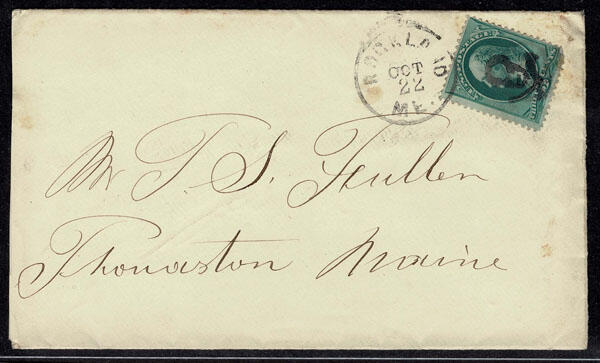 ROCKLAND
OCT
22
ME.
Mr T. S. Fullen
Thomaston Maine